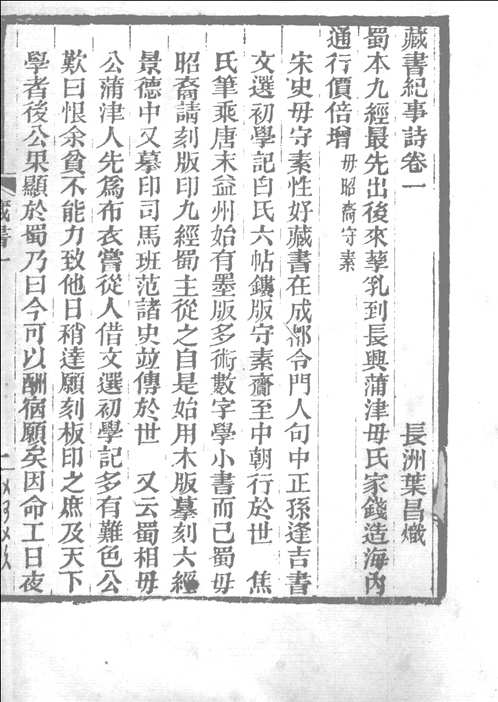 藏書紀事詩卷一
長洲葉昌熾
蜀本九經最先出後來孳乳到長興蒲津毋氏家錢造海內
通行價倍增 毋昭裔守素
宋史毋守素性好藏書在成都令門人句中正孫逢吉書
文選初學記白氏六帖鏤版守素齎至中朝行於世 焦
氏筆乘唐末益州始有墨版多術數字學小書而已蜀毋
昭裔請刻版印九經蜀主從之自是始用木版摹刻六經
景德中又摹印司馬班范諸史並傳於世 又云蜀相毋
公蒲津人先爲布衣嘗從人借文選初學記多有難色公
歎曰恨余貧不能力致他日稍達願刻板印之庶及天下
學者後公果顯於蜀乃曰今可以酬宿願矣因命工日夜
藏書一